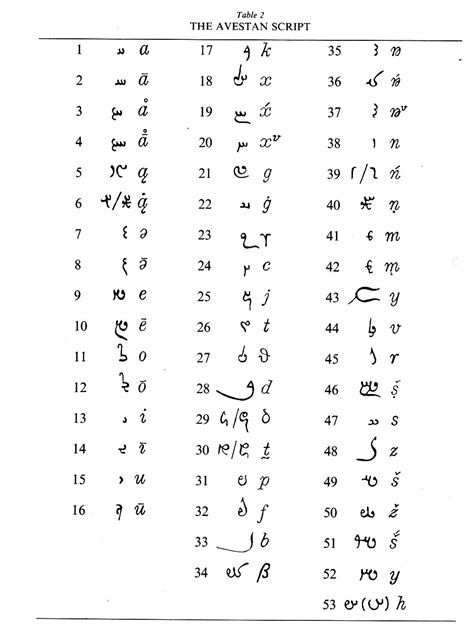 Table 2
THE AVESTAN SCRIPT
1 𐬀 a
2 𐬁 ā
3 𐬂 å
4 𐬃 ā̊
5 𐬄 ą
6 𐬅 ą̇
7 𐬆 ə
8 𐬇 ə̄
9 𐬈 e
10 𐬉 ē
11 𐬊 o
12 𐬋 ō
13 𐬌 i
14 𐬍 ī
15 𐬎 u
16 𐬏 ū
17 𐬐 k
18 𐬑 x
19 𐬒 x́
20 𐬓 xᵛ
21 𐬔 g
22 𐬕 ġ
23 𐬖 γ
24 𐬗 c
25 𐬘 j
26 𐬙 t
27 𐬚 ϑ
28 𐬛 d
29 𐬜 δ
30 𐬝 t̰
31 𐬞 p
32 𐬟 f
33 𐬠 b
34 𐬡 β
35 𐬢 ŋ
36 𐬣 ŋ́
37 𐬤 ŋᵛ
38 𐬥 n
39 𐬦 ń
40 𐬧 ṇ
41 𐬨 m
42 𐬩 m̨
43 𐬪 y
44 𐬬 v
45 𐬭 r
46 𐬴 ṣ̌
47 𐬯 s
48 𐬰 z
49 𐬱 š
50 𐬲 ž
51 𐬳 š́
52 𐬫 y
53 𐬵 h